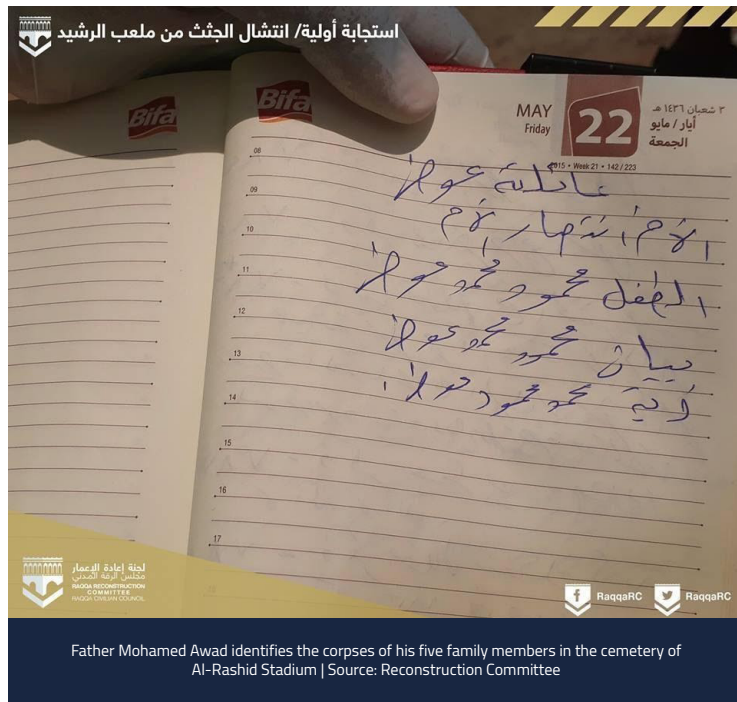 استجابة أولية/ انتشال الجثث من ملعب الرشيد
Bifa
Bifa
MAY
Friday
22
٣ شعبان ١٤٣٦ هـ
أيار / مايو
الجمعة
2015 • Week 21 • 142 / 223
08
عائلة عوض
09
الأم انتصار
10
11
الطفل محمود محمد عوض
12
بيان محمود محمد عوض
13
آية محمد محمود عوض
14
15
16
17
لجنة إعادة الإعمار
مجلس الرقة المدني
RAQQA RECONSTRUCTION
COMMITTEE
RAQQA CIVILIAN COUNCIL
RaqqaRC
RaqqaRC
Father Mohamed Awad identifies the corpses of his five family members in the cemetery of
Al-Rashid Stadium | Source: Reconstruction Committee